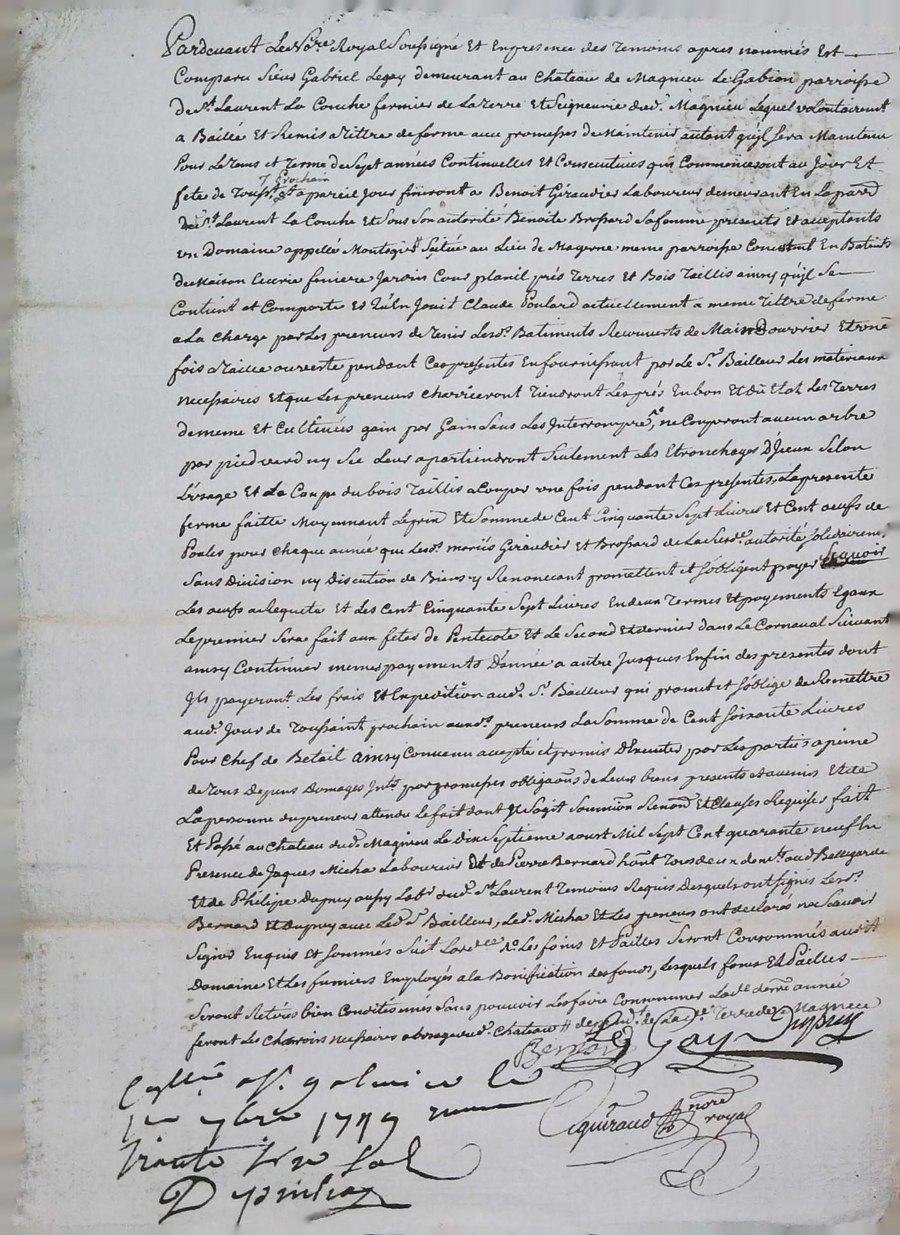 Pardevant Le No.re Royal Soussigné Et Enpresence des Temoins apres nommés Est
Comparu Sieur Gabriel Legay demeurant au Chateau de Magnieu Le Gabion parroisse
de St. Laurent La Conche fermier de La Terre Et Seigneurie dud. Magnieu Lequel volontairemt.
a Baillé Et Remis a Tittre de ferme avec promesses de Maintenir autant qu'il sera Maintenu
Pour Le Tems et Terme de Sept années Continuelles Et Consecutives qui Commenceront au Jour Et
prochain
fete de Touss.t Et a pareil Jour finiront a Benoit Giraudier Laboureur demeurant En La parr.
de St. Laurent La Conche Et Sous Son autorité Benoite Brossard Sa femme presents Et acceptants
un Domaine appellé Situé au Lieu de Magnieu meme parroisse Consistant En Batimts
de Maison Ecurie feniere Jardin Cour planil prés Terres Et Bois Taillis ainsy qu'il Se
Contient et Comporte Et qu'En Jouit Claude Poulard actuellement a meme Tittre de ferme
a La Charge par Les preneurs de Tenir Lesd. Batiments Recouverts de Main D'ouvrier Et une
fois a Taille ouverte pendant Ces presentes En fournissant par Le Sr. Bailleur Les materiaux
necessaires Et que Les preneurs Charrieront Tiendront Les prés En bon Et dû Etat Les Terres
de meme Et Cultivées gain par Gain Sans Les Interrompre, ne Couperont aucun arbre
par pied verd ny Sec Leur apartiendront Seulement Les Etronchages D'Iceux Selon
L'usage Et La Coupe du bois Taillis a Couper une fois pendant Ces presentes, La presente
ferme faitte Moyennant Le prix Et Somme de Cent Cinquante Sept Livres Et Cent oeufs de
Poules pour Chaque année que Lesd. mariés Giraudier Et Brossard de La Susd. autorité Solidairemt.
Sans Division ny Discution de Biens y Renoncant promettent Et S'obligent payer Sçavoir
Les oeufs a Requete Et Les Cent Cinquante Sept Livres En deux Termes Et payements Egaux
Le premier Sera fait aux fetes de Pentecote Et Le Second Et dernier dans Le Carnaval Suivant
ainsy Continuer memes payements D'année a autre Jusques Enfin des presentes dont
Ils payeront Les frais Et Expedition aud. Sr. Bailleur qui promet Et S'oblige de Remettre
aud. Jour de Toussaint prochain auxd. preneurs La Somme de Cent Soixante Livres
Pour Chef de Betail ainsy Convenu accepté et promis D'Executer par Les parties a peine
de Tous Depens Domages Intts. par promesses obligaons de Leurs biens presents Et avenir Et de
La personne du preneur attendu Le fait dont Il S'agit Soumion Renon. Et Clauses Requises fait
Et Passé au Chateau dud. Magnieu Le Dix Septieme aoust Mil Sept Cent quarante neuf En
Presence de Jaques Micha Laboureur Et de Pierre Bernard
Et de Philippe Dupuy aussy Labr. dud. St. Laurent Temoins Requis Desquels ont Signés Lesd.
Bernard Et Dupuy avec Led. Sr. Bailleur, Led. Micha Et Les preneurs ont declarés ne Scavoir
Signer Enquis Et Sommés Les foins Et Pailles Seront Consommés aud.
Domaine Et Les fumiers Employés a la Bonification des fonds, Lesquels foins Et Pailles
Seront Sans pouvoir Les faire Consommer La de. derre. année
feront Les Charrois necessaires a Chateau de La de. Terre de Magnieu
Bernard Le Gay Dupuy
nore
royal
1749
Trente